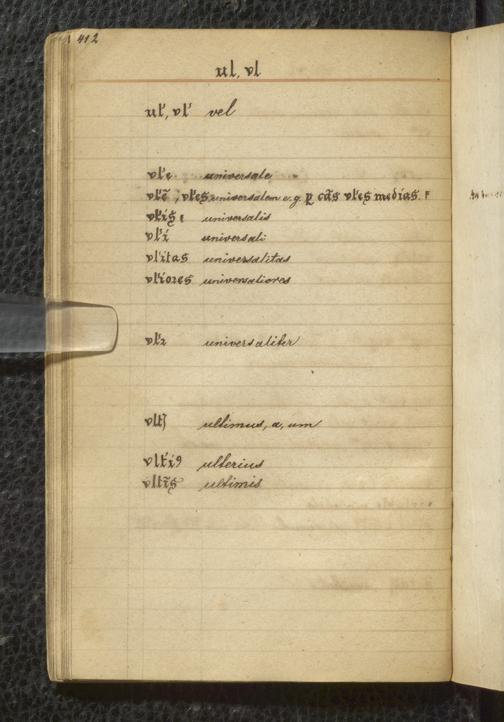 412
ul, vl
ul', vl' vel
vl'e universale
vl'ē, vl'es universalem e.g. ꝑ cās vl'es medias.
vl'is universalis
vl'i universali
vl'itas universalitas
vl'iores universaliores
vl'r universaliter
vltꝭ ultimus, a, um
vlt'i9 ulterius
vltīs ultimis